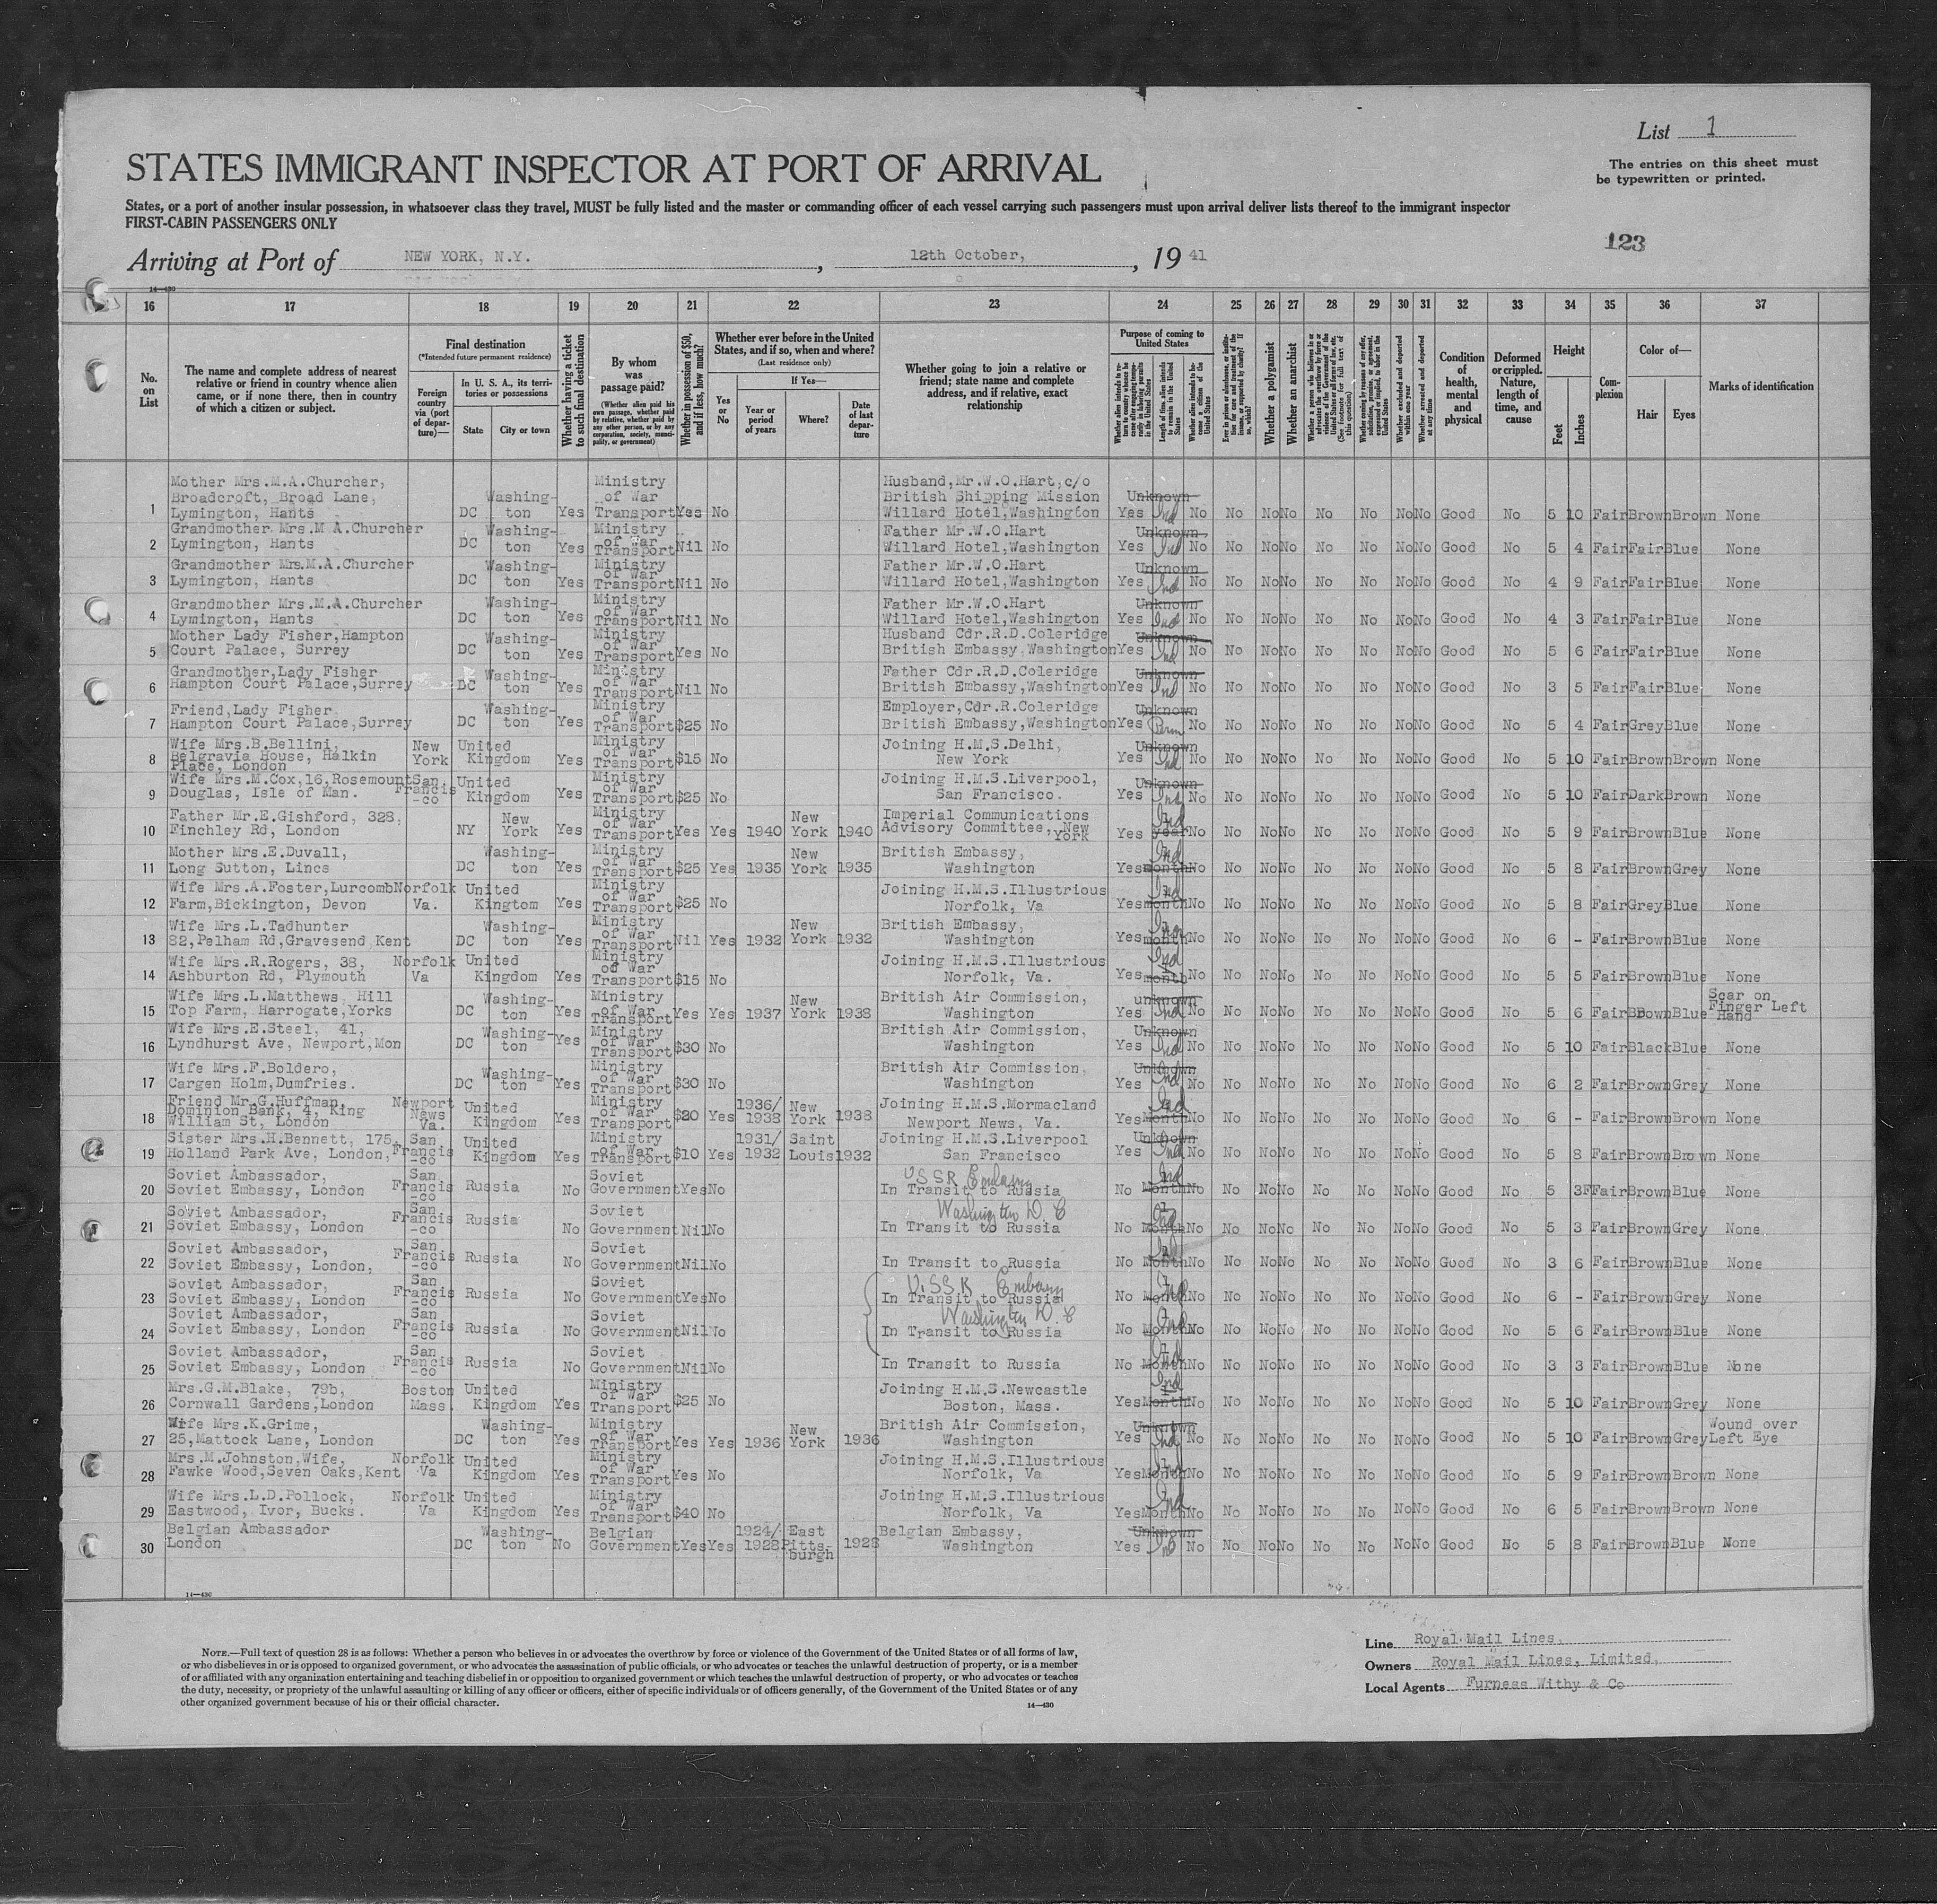 List 1
The entries on this sheet must
be typewritten or printed.
STATES IMMIGRANT INSPECTOR AT PORT OF ARRIVAL
States, or a port of another insular possession, in whatsoever class they travel, MUST be fully listed and the master or commanding officer of each vessel carrying such passengers must upon arrival deliver lists thereof to the immigrant inspector
FIRST-CABIN PASSENGERS ONLY
123
Arriving at Port of NEW YORK, N.Y. , 12th October, , 19 41
14—430
16 17 18 19 20 21 22 23 24 25 26 27 28 29 30 31 32 33 34 35 36 37
No. on List
The name and complete address of nearest relative or friend in country whence alien came, or if none there, then in country of which a citizen or subject.
Final destination
(*Intended future permanent residence)
Foreign country via (port of departure)—
In U. S. A., its territories or possessions
State
City or town
Whether having a ticket to such final destination
By whom was passage paid?
(Whether alien paid his own passage, whether paid by relative, whether paid by any other person, or by any corporation, society, municipality, or government)
Whether in possession of $50, and if less, how much?
Whether ever before in the United States, and if so, when and where?
(Last residence only)
Yes or No
If Yes—
Year or period of years
Where?
Date of last departure
Whether going to join a relative or friend; state name and complete address, and if relative, exact relationship
Purpose of coming to United States
Length of time alien intends to remain in the United States
Whether alien intends to become a citizen of the United States
Whether a polygamist
Whether an anarchist
Whether excluded and deported within one year
Whether arrested and deported at any time
Condition of health, mental and physical
Deformed or crippled. Nature, length of time, and cause
Height
Feet
Inches
Complexion
Color of—
Hair
Eyes
Marks of identification
1 Mother Mrs.M.A.Churcher, Broadcroft, Broad Lane, Lymington, Hants DC Washington Yes Ministry of War Transport Yes No Husband, Mr.W.O.Hart, c/o British Shipping Mission Willard Hotel, Washington Unknown Yes Ind No No No No No No No No Good No 5 10 Fair Brown Brown None
2 Grandmother Mrs.M A.Churcher Lymington, Hants DC Washington Yes Ministry of War Transport Nil No Father Mr.W.O.Hart Willard Hotel, Washington Unknown Yes Ind No No No No No No No No Good No 5 4 Fair Fair Blue None
3 Grandmother Mrs.M.A.Churcher Lymington, Hants DC Washington Yes Ministry of War Transport Nil No Father Mr.W.O.Hart Willard Hotel, Washington Unknown Yes Ind No No No No No No No No Good No 4 9 Fair Fair Blue None
4 Grandmother Mrs.M.A.Churcher Lymington, Hants DC Washington Yes Ministry of War Transport Nil No Father Mr.W.O.Hart Willard Hotel, Washington Unknown Yes Ind No No No No No No No No Good No 4 3 Fair Fair Blue None
5 Mother Lady Fisher, Hampton Court Palace, Surrey DC Washington Yes Ministry of War Transport Yes No Husband Cdr.R.D.Coleridge British Embassy, Washington Unknown Yes Ind No No No No No No No No Good No 5 6 Fair Fair Blue None
6 Grandmother, Lady Fisher Hampton Court Palace, Surrey DC Washington Yes Ministry of War Transport Nil No Father Cdr.R.D.Coleridge British Embassy, Washington Unknown Yes Ind No No No No No No No No Good No 3 5 Fair Fair Blue None
7 Friend, Lady Fisher Hampton Court Palace, Surrey DC Washington Yes Ministry of War Transport $25 No Employer, Cdr.R.Coleridge British Embassy, Washington Unknown Yes Perm No No No No No No No No Good No 5 4 Fair Grey Blue None
8 Wife Mrs.B.Bellini, Belgravia House, Halkin Place, London New York United Kingdom Yes Ministry of War Transport $15 No Joining H.M.S.Delhi, New York Unknown Yes Ind No No No No No No No No Good No 5 10 Fair Brown Brown None
9 Wife Mrs.M.Cox, 16, Rosemount Douglas, Isle of Man. San Francis-co United Kingdom Yes Ministry of War Transport $25 No Joining H.M.S.Liverpool, San Francisco. Unknown Yes Ind No No No No No No No No Good No 5 10 Fair Dark Brown None
10 Father Mr.E.Gishford, 328, Finchley Rd, London NY New York Yes Ministry of War Transport Yes Yes 1940 New York 1940 Imperial Communications Advisory Committee, New York Yes Ind year No No No No No No No No Good No 5 9 Fair Brown Blue None
11 Mother Mrs.E.Duvall, Long Sutton, Lincs DC Washington Yes Ministry of War Transport $25 Yes 1935 New York 1935 British Embassy, Washington Yes Ind month No No No No No No No No Good No 5 8 Fair Brown Grey None
12 Wife Mrs.A.Foster, Lurcomb Farm, Bickington, Devon Norfolk Va. United Kingtom Yes Ministry of War Transport $25 No Joining H.M.S.Illustrious Norfolk, Va Yes Ind month No No No No No No No No Good No 5 8 Fair Grey Blue None
13 Wife Mrs.L.Tadhunter 82, Pelham Rd, Gravesend Kent DC Washington Yes Ministry of War Transport Nil Yes 1932 New York 1932 British Embassy, Washington Yes Ind month No No No No No No No No Good No 6 - Fair Brown Blue None
14 Wife Mrs.R.Rogers, 38, Ashburton Rd, Plymouth Norfolk Va United Kingdom Yes Ministry od War Transport $15 No Joining H.M.S.Illustrious Norfolk, Va. Yes Ind month No No No No No No No No Good No 5 5 Fair Brown Blue None
15 Wife Mrs.L.Matthews Hill Top Farm, Harrogate, Yorks DC Washington Yes Ministry of War Transport Yes Yes 1937 New York 1938 British Air Commission, Washington unknown Yes Ind No No No No No No No No Good No 5 6 Fair Brown Blue Scar on Finger Left Hand
16 Wife Mrs.E.Steel, 41, Lyndhurst Ave, Newport, Mon DC Washington Yes Ministry of War Transport $30 No British Air Commission, Washington Unknown Yes Ind No No No No No No No No Good No 5 10 Fair Black Blue None
17 Wife Mrs.F.Boldero, Cargen Holm, Dumfries. DC Washington Yes Ministry of War Transport $30 No British Air Commission, Washington Unknown Yes Ind No No No No No No No No Good No 6 2 Fair Brown Grey None
18 Friend Mr.G.Huffman, Dominion Bank, 4, King William St, London Newport News Va. United Kingdom Yes Ministry of War Transport $20 Yes 1936/1938 New York 1938 Joining H.M.S.Mormacland Newport News, Va. Yes Ind Month No No No No No No No No Good No 6 - Fair Brown Brown None
19 Sister Mrs.H.Bennett, 175, Holland Park Ave, London, San Francis-co United Kingdom Yes Ministry of War Transport $10 Yes 1931/1932 Saint Louis 1932 Joining H.M.S.Liverpool San Francisco Unknown Yes Ind No No No No No No No No Good No 5 8 Fair Brown Brown None
20 Soviet Ambassador, Soviet Embassy, London San Francis-co Russia No Soviet Government Yes No USSR Embassy In Transit to Russia Washington D.C No Ind Month No No No No No No No No Good No 5 3 Fair Brown Blue None
21 Soviet Ambassador, Soviet Embassy, London San Francis-co Russia No Soviet Government Nil No In Transit to Russia No Ind Month No No No No No No No No Good No 5 3 Fair Brown Grey None
22 Soviet Ambassador, Soviet Embassy, London, San Francis-co Russia No Soviet Government Nil No In Transit to Russia No Ind Month No No No No No No No No Good No 3 6 Fair Brown Blue None
23 Soviet Ambassador, Soviet Embassy, London San Francis-co Russia No Soviet Government Yes No USSR Embassy In Transit to Russia Washington D.C No Ind Month No No No No No No No No Good No 6 - Fair Brown Grey None
24 Soviet Ambassador, Soviet Embassy, London San Francis-co Russia No Soviet Government Nil No In Transit to Russia No Ind Month No No No No No No No No Good No 5 6 Fair Brown Blue None
25 Soviet Ambassador, Soviet Embassy, London San Francis-co Russia No Soviet Government Nil No In Transit to Russia No Ind Month No No No No No No No No Good No 3 3 Fair Brown Blue None
26 Mrs.G.M.Blake, 79b, Cornwall Gardens, London Boston Mass. United Kingdom Yes Ministry of War Transport $25 No Joining H.M.S.Newcastle Boston, Mass. Yes Ind Month No No No No No No No No Good No 5 10 Fair Brown Grey None
27 Wife Mrs.K.Grime, 25, Mattock Lane, London DC Washington Yes Ministry of War Transport Yes Yes 1936 New York 1936 British Air Commission, Washington Unknown Yes Ind No No No No No No No No Good No 5 10 Fair Brown Grey Wound over Left Eye
28 Mrs.M.Johnston, Wife, Fawke Wood, Seven Oaks, Kent Norfolk Va United Kingdom Yes Ministry of War Transport Yes No Joining H.M.S.Illustrious Norfolk, Va Yes Ind Month No No No No No No No No Good No 5 9 Fair Brown Brown None
29 Wife Mrs.L.D.Pollock, Eastwood, Ivor, Bucks. Norfolk Va United Kingdom Yes Ministry of War Transport $40 No Joining H.M.S.Illustrious Norfolk, Va Yes Ind Month No No No No No No No No Good No 6 5 Fair Brown Brown None
30 Belgian Ambassador London DC Washington No Belgian Government Yes Yes 1924/1928 East Pitts-burgh 1928 Belgian Embassy, Washington Unknown Yes Ind No No No No No No No No Good No 5 8 Fair Brown Blue None
14—430
NOTE.—Full text of question 28 is as follows: Whether a person who believes in or advocates the overthrow by force or violence of the Government of the United States or of all forms of law,
or who disbelieves in or is opposed to organized government, or who advocates the assassination of public officials, or who advocates or teaches the unlawful destruction of property, or is a member
of or affiliated with any organization entertaining and teaching disbelief in or opposition to organized government or which teaches the unlawful destruction of property, or who advocates or teaches
the duty, necessity, or propriety of the unlawful assaulting or killing of any officer or officers, either of specific individuals or of officers generally, of the Government of the United States or of any
other organized government because of his or their official character.
14—430
Line Royal Mail Lines,
Owners Royal Mail Lines, Limited,
Local Agents Furness Withy & Co